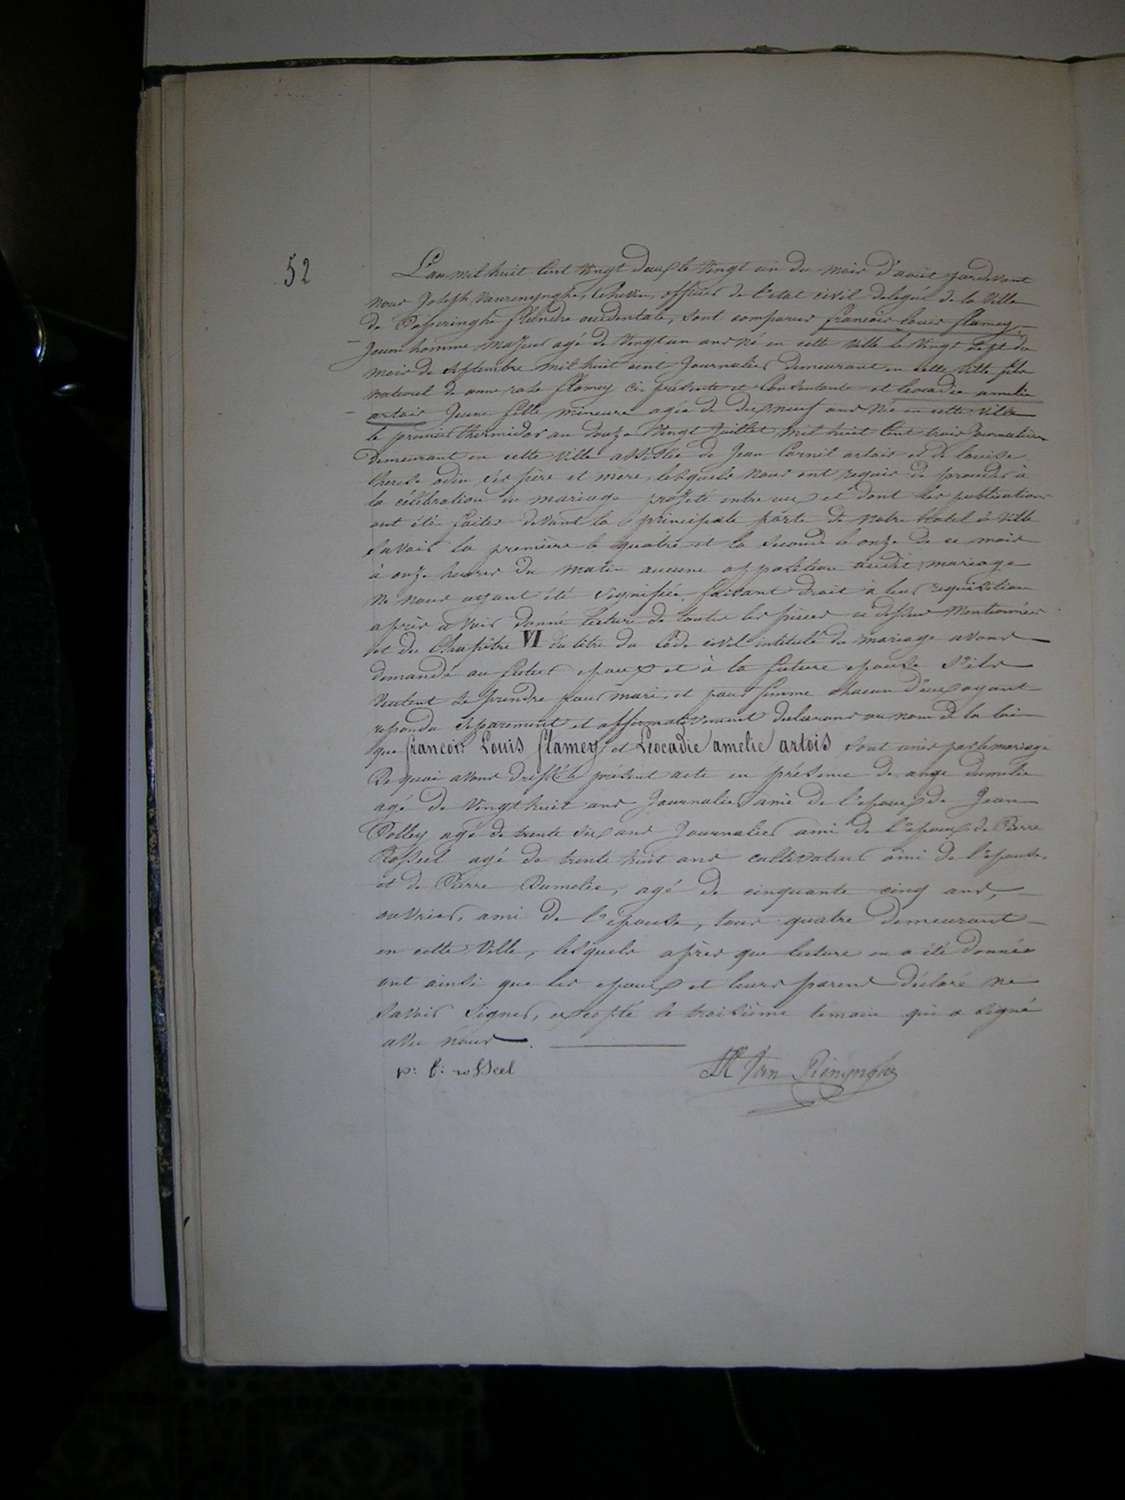 52
L'an mil huit cent vingt deux le vingt un du mois d'août pardevant
nous Joseph Vanrenynghe, Echevin, officier de l'état civil delegué de la ville
de Poperinghe flandre occidentale, sont comparus francois louis flamey,
Jeune homme majeur agé de vingt un ans né en cette ville le vingt sept du
mois de Septembre mil huit cent Journalier demeurant en cette ville fils
naturel de anne rose flamey ci présente et Consentante et leocadie amelie
artois Jeune fille mineure agée de dix neuf ans née en cette ville
le premier thermidor an douze vingt Juillet mil huit cent trois Journalière
demeurant en cette ville assistée de Jean Cornil artois et de louise
therese odou ses père et mère, lesquels nous ont requis de proceder à
la célébration du mariage projeté entre eux et dont les publications
ont été faites devant la principale porte de notre hotel de ville
Savoir la première le quatre et la Seconde le onze de ce mois
à onze heures du matin aucune opposition audit mariage
ne nous ayant été Signifiée faisant droit à leur requisition
après avoir donné lecture de toutes les pièces ci dessus mentionnées
et du Chapitre VI du titre du Code civil intitulé du mariage avons
demandé au futur epoux et à la future epouse s'ils
veulent se prendre pour mari et pour femme chacun d'eux ayant
repondu separement et affirmativement declarons au nom de la loi
que francois Louis flamey et Leocadie amelie artois Sont unis par le mariage
De quoi avons dressé le présent acte en présence de ange dumelie
agé de vingt huit ans Journalier ami de l'epoux de Jean
Polley agé de trente six ans Journalier ami de l'epoux de Pierre
Rosseel agé de trente huit ans cultivateur ami de l'epouse
et de Pierre Dumelie, agé de cinquante cinq ans,
ouvrier, ami de l'epouse, tous quatre demeurant
en cette ville, lesquels après que lecture en a été donnée
ont ainsi que les epoux et leurs parens déclaré ne
Savoir Signer, excepté le troisième temoin qui a Signé
avec nous.
p: f: rosseel
Van Renynghe